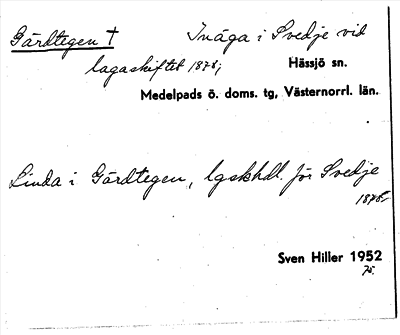 Gärdtegen † Inäga i Svedje vid
lagaskiftet 1878;
Hässjö sn.
Medelpads ö. doms. tg, Västernorrl. län.
Linda i Gärdtegen, lgskhdl. för Svedje
1878
Sven Hiller 1952